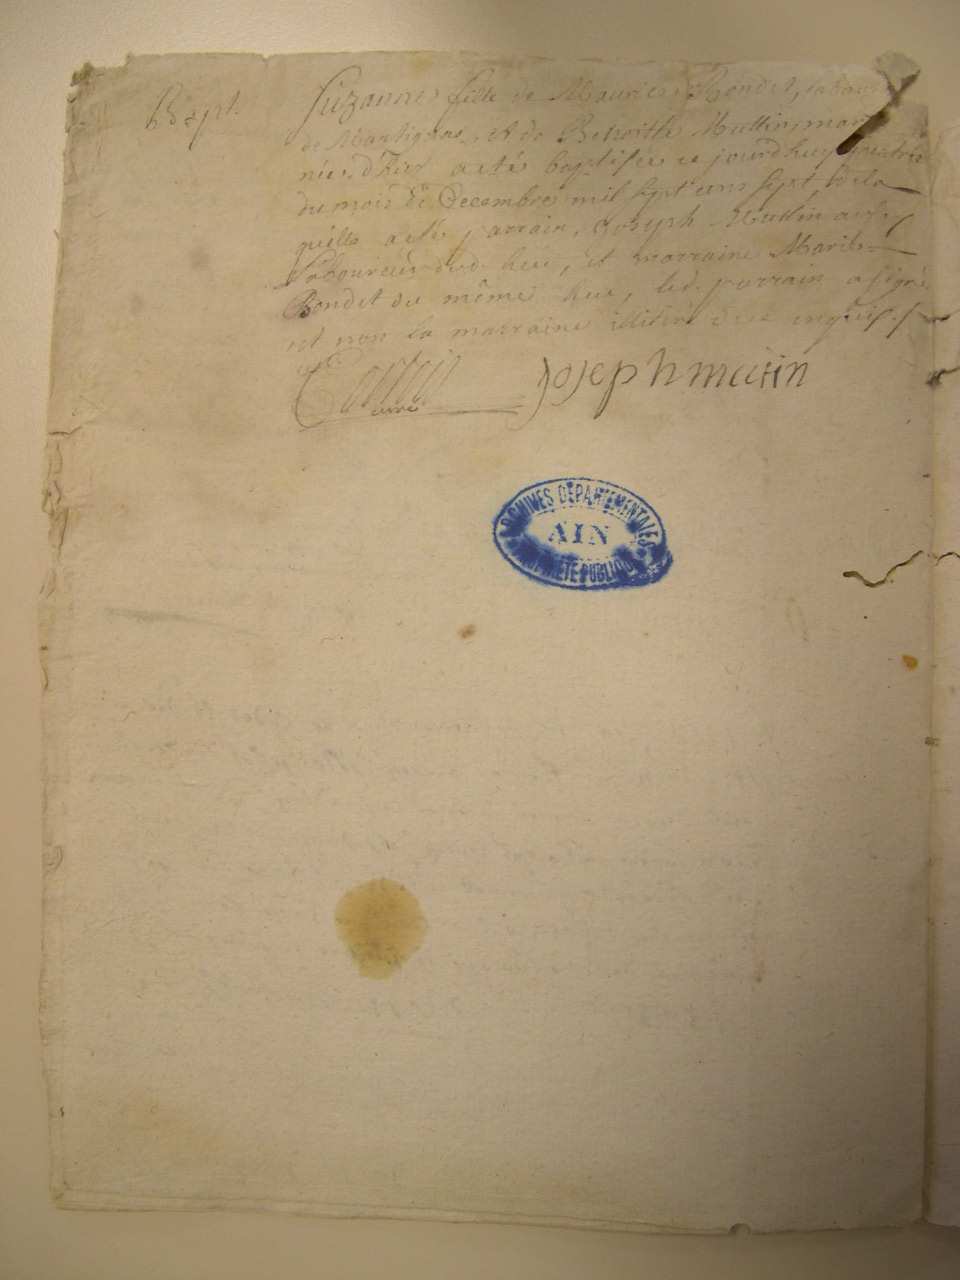 Bapt.
Suzanne fille de Maurice Rondet, labour
de Martignas, et de Benoitte Muttin, mar
née d'hier a eté baptisée ce jourdhuy quatrie
du mois de Decembre mil sept cens sept, de la
quelle a eté parrain, Joseph Muttin aussi
Laboureur dud. lieu, et marraine Marie
Rondet du même lieu, led. parrain a signé
et non la marraine illiteré de ce enquis.
curé
Joseph mutin
ARCHIVES DÉPARTEMENTALES
AIN
PROPRIÉTÉ PUBLIQUE